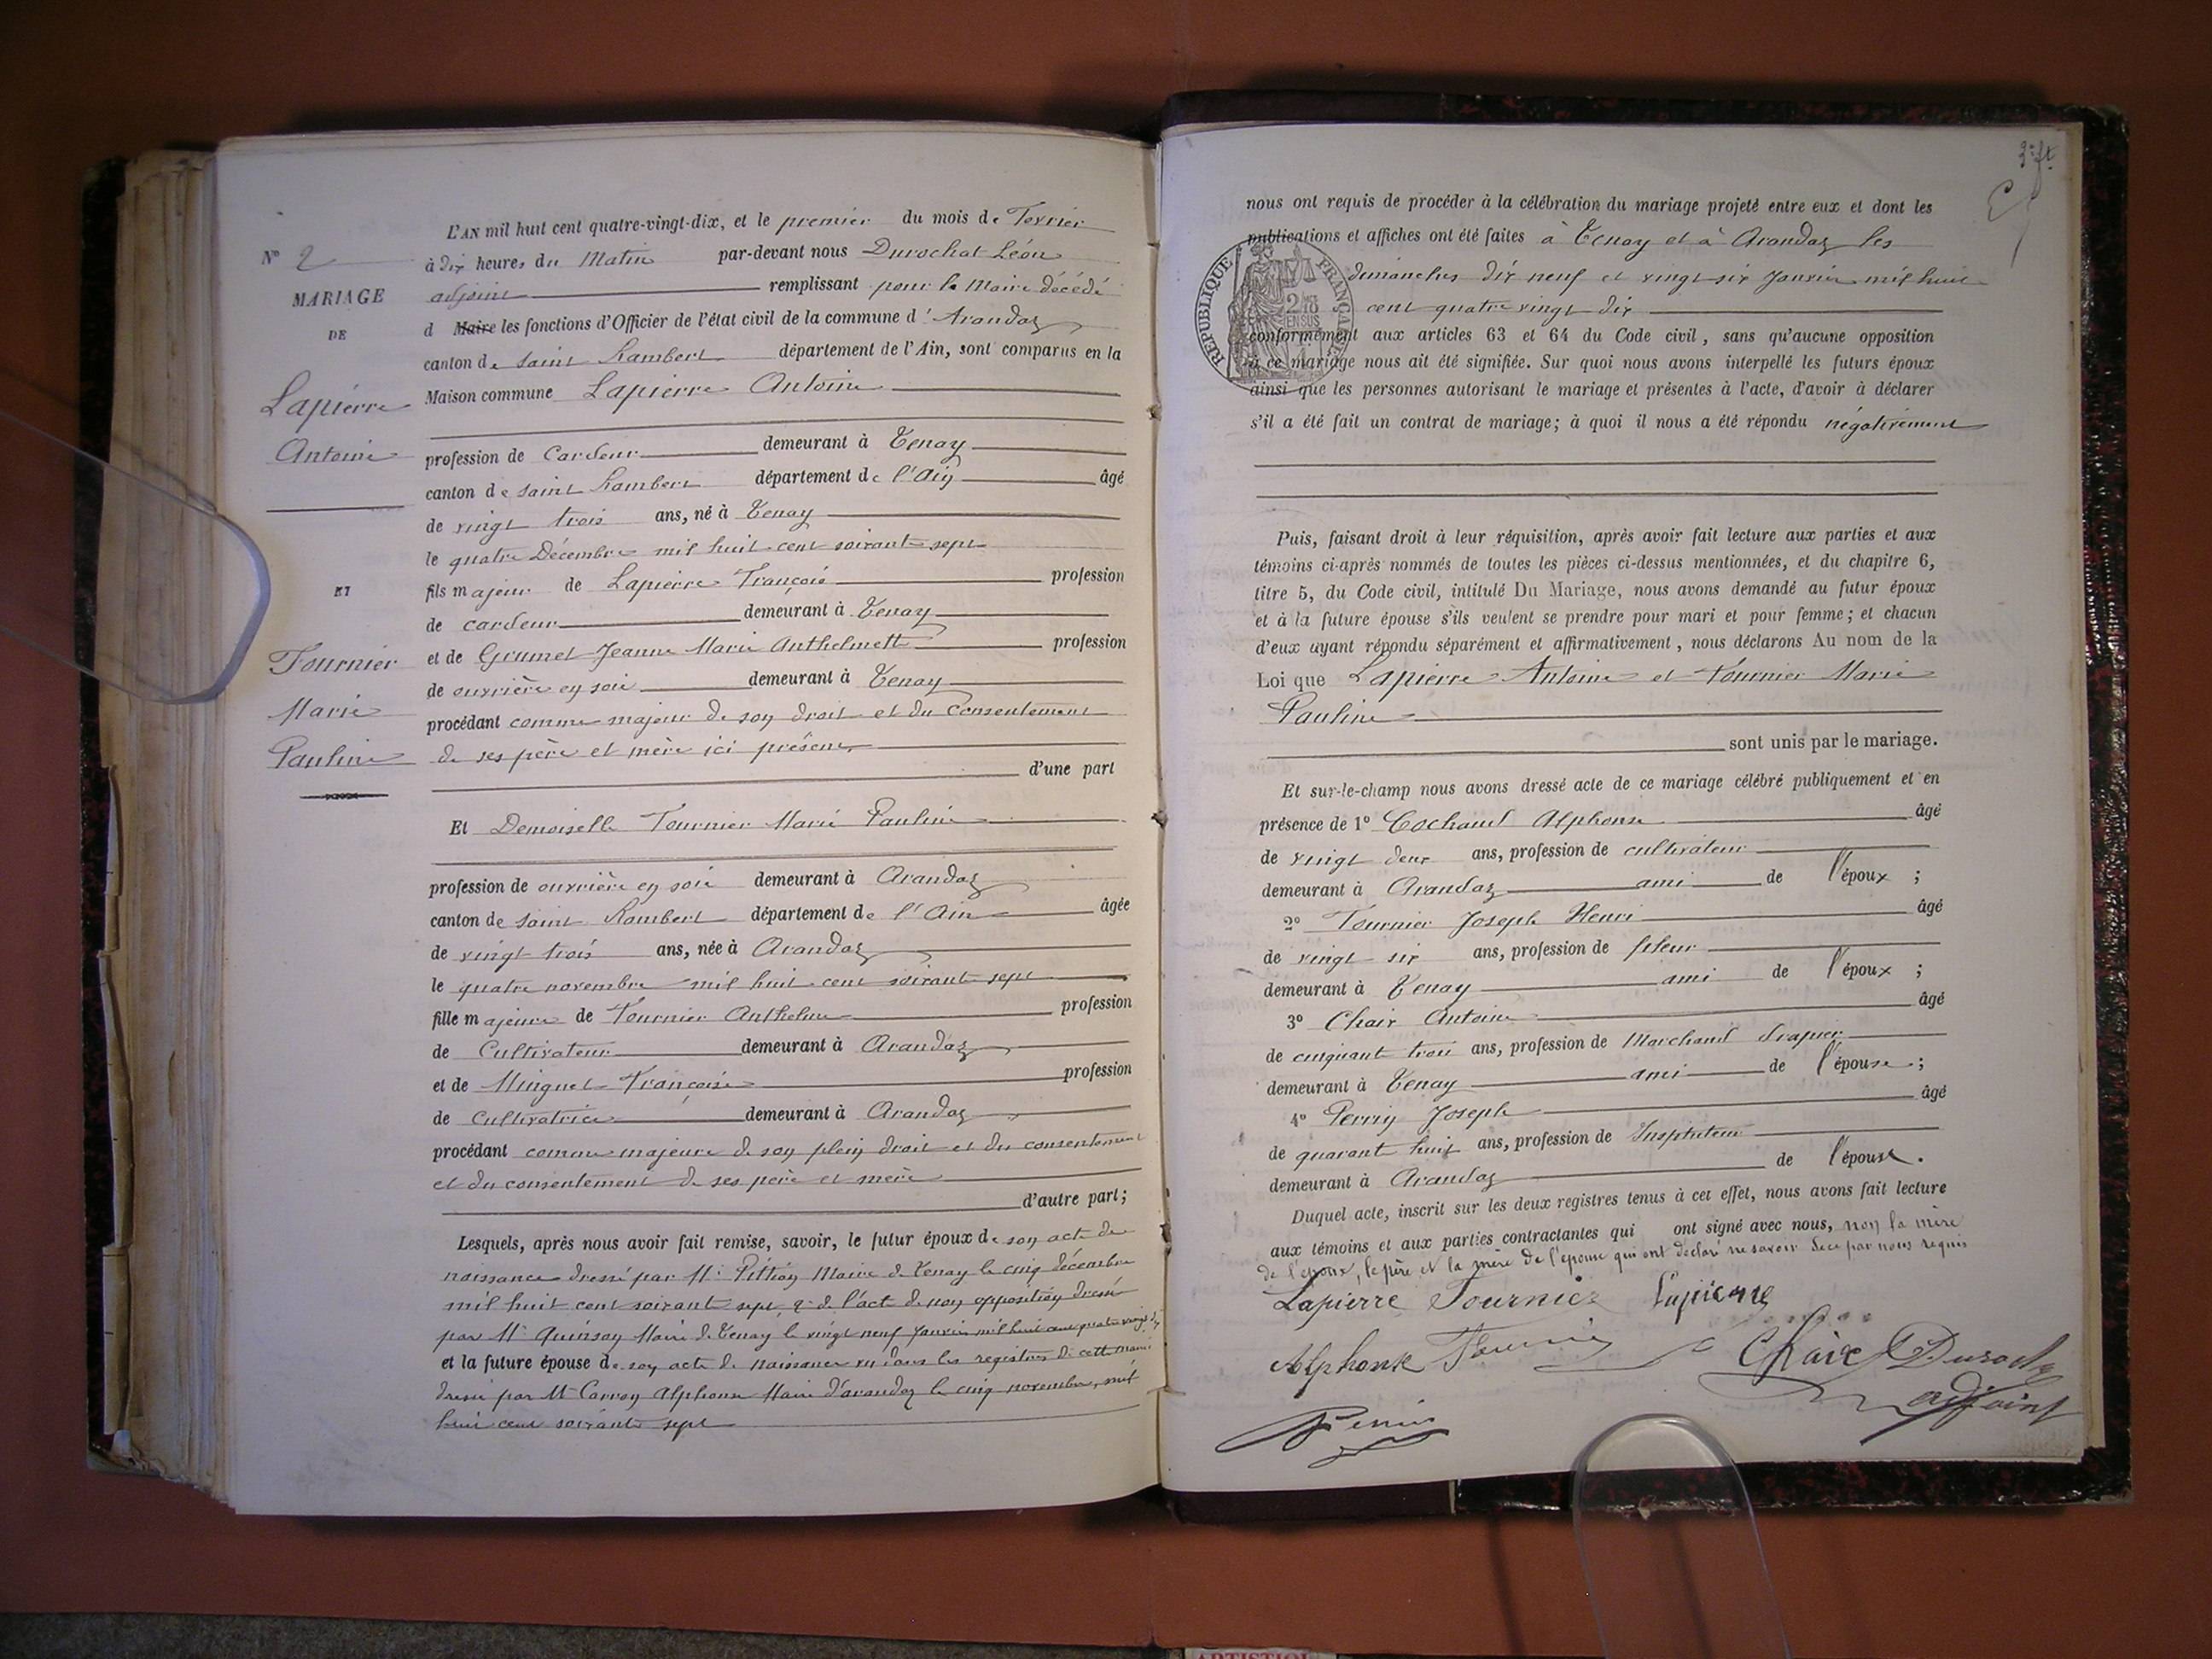 N° 2
MARIAGE
DE
Lapierre
Antoine
ET
Fournier
Marie
Pauline
L'AN mil huit cent quatre-vingt-dix, et le premier du mois de Fevrier
à dix heures du Matin par-devant nous Durochat Léon
adjoint remplissant pour le Maire décédé
d Maire les fonctions d'Officier de l'état civil de la commune d'Arandaz
canton de Saint Rambert département de l'Ain, sont comparus en la
Maison commune Lapierre Antoine
profession de Cardeur demeurant à Tenay
canton de Saint Rambert département de l'Ain âgé
de vingt trois ans, né à Tenay
le quatre Décembre mil huit cent soixante sept
fils majeur de Lapierre François profession
de cardeur demeurant à Tenay
et de Grumet Jeanne Marie Anthelmette profession
de ouvrière en soie demeurant à Tenay
procédant comme majeur de son droit et du Consentement
de ses père et mère ici présens
d'une part
Et Demoiselle Fournier Marie Pauline
profession de ouvrière en soie demeurant à Arandaz
canton de Saint Rambert département de l'Ain âgée
de vingt trois ans, née à Arandaz
le quatre novembre mil huit cent soixante sept
fille majeure de Fournier Anthelme profession
de Cultivateur demeurant à Arandaz
et de Minguet Françoise profession
de Cultivatrice demeurant à Arandaz
procédant comme majeure de son plein droit et du consentement
et du consentement de ses père et mère
d'autre part;
Lesquels, après nous avoir fait remise, savoir, le futur époux de son acte de
naissance dressé par Mr Pittion Maire de Tenay le cinq décembre
mil huit cent soixante sept, 2° de l'acte de non opposition dressé
par Mr Quinson Maire de Tenay le vingt neuf Janvier mil huit cent quatre vingt dix
et la future épouse de son acte de naissance vu dans les registres de cette mairie
dressé par Mr Carron Alphonse Maire d'arandaz le cinq novembre, mil
huit cent soixante sept
nous ont requis de procéder à la célébration du mariage projeté entre eux et dont les
publications et affiches ont été faites à Tenay et à Arandaz les
dimanches dix neuf et vingt six Janvier mil huit
cent quatre vingt dix
RÉPUBLIQUE FRANÇAISE
conformément aux articles 63 et 64 du Code civil, sans qu'aucune opposition
à ce mariage nous ait été signifiée. Sur quoi nous avons interpellé les futurs époux
ainsi que les personnes autorisant le mariage et présentes à l'acte, d'avoir à déclarer
s'il a été fait un contrat de mariage; à quoi il nous a été répondu négativement
Puis, faisant droit à leur réquisition, après avoir fait lecture aux parties et aux
témoins ci-après nommés de toutes les pièces ci-dessus mentionnées, et du chapitre 6,
titre 5, du Code civil, intitulé Du Mariage, nous avons demandé au futur époux
et à la future épouse s'ils veulent se prendre pour mari et pour femme; et chacun
d'eux ayant répondu séparément et affirmativement, nous déclarons Au nom de la
Loi que Lapierre Antoine et Fournier Marie
Pauline
sont unis par le mariage.
Et sur-le-champ nous avons dressé acte de ce mariage célébré publiquement et en
présence de 1° Cochand Alphonse âgé
de vingt deux ans, profession de cultivateur
demeurant à Arandaz ami de l'époux;
2° Fournier Joseph Henri âgé
de vingt six ans, profession de fileur
demeurant à Tenay ami de l'époux;
3° Chaix Antoine âgé
de cinquante trois ans, profession de Marchand drapier
demeurant à Tenay ami de l'épouse;
4° Perrin Joseph âgé
de quarante huit ans, profession de Instituteur
demeurant à Arandaz de l'épouse.
Duquel acte, inscrit sur les deux registres tenus à cet effet, nous avons fait lecture
aux témoins et aux parties contractantes qui ont signé avec nous, non la mère
de l'époux, le père et la mère de l'épouse qui ont déclaré ne savoir de ce par nous requis
Lapierre Fournier Lapierre
Alphonse Fournier Chaix Durochat
adjoint
Perrin